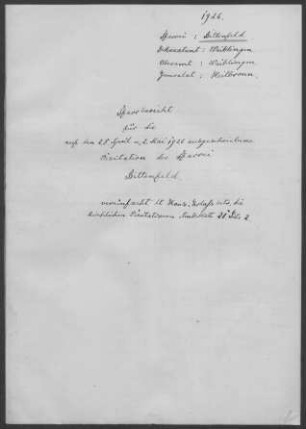 1922.
Pfarrei: Bittenfeld.
Dekanatamt: Waiblingen
Oberamt: Waiblingen
Generalat: Heilbronn.
Pfarrbericht
für die
auf den 28. April u. 2. Mai 1922 ausgeschriebene
Visitation der Pfarrei
Bittenfeld.
vereinfacht lt. Kons. Erlass betr. die
kirchlichen Visitationen